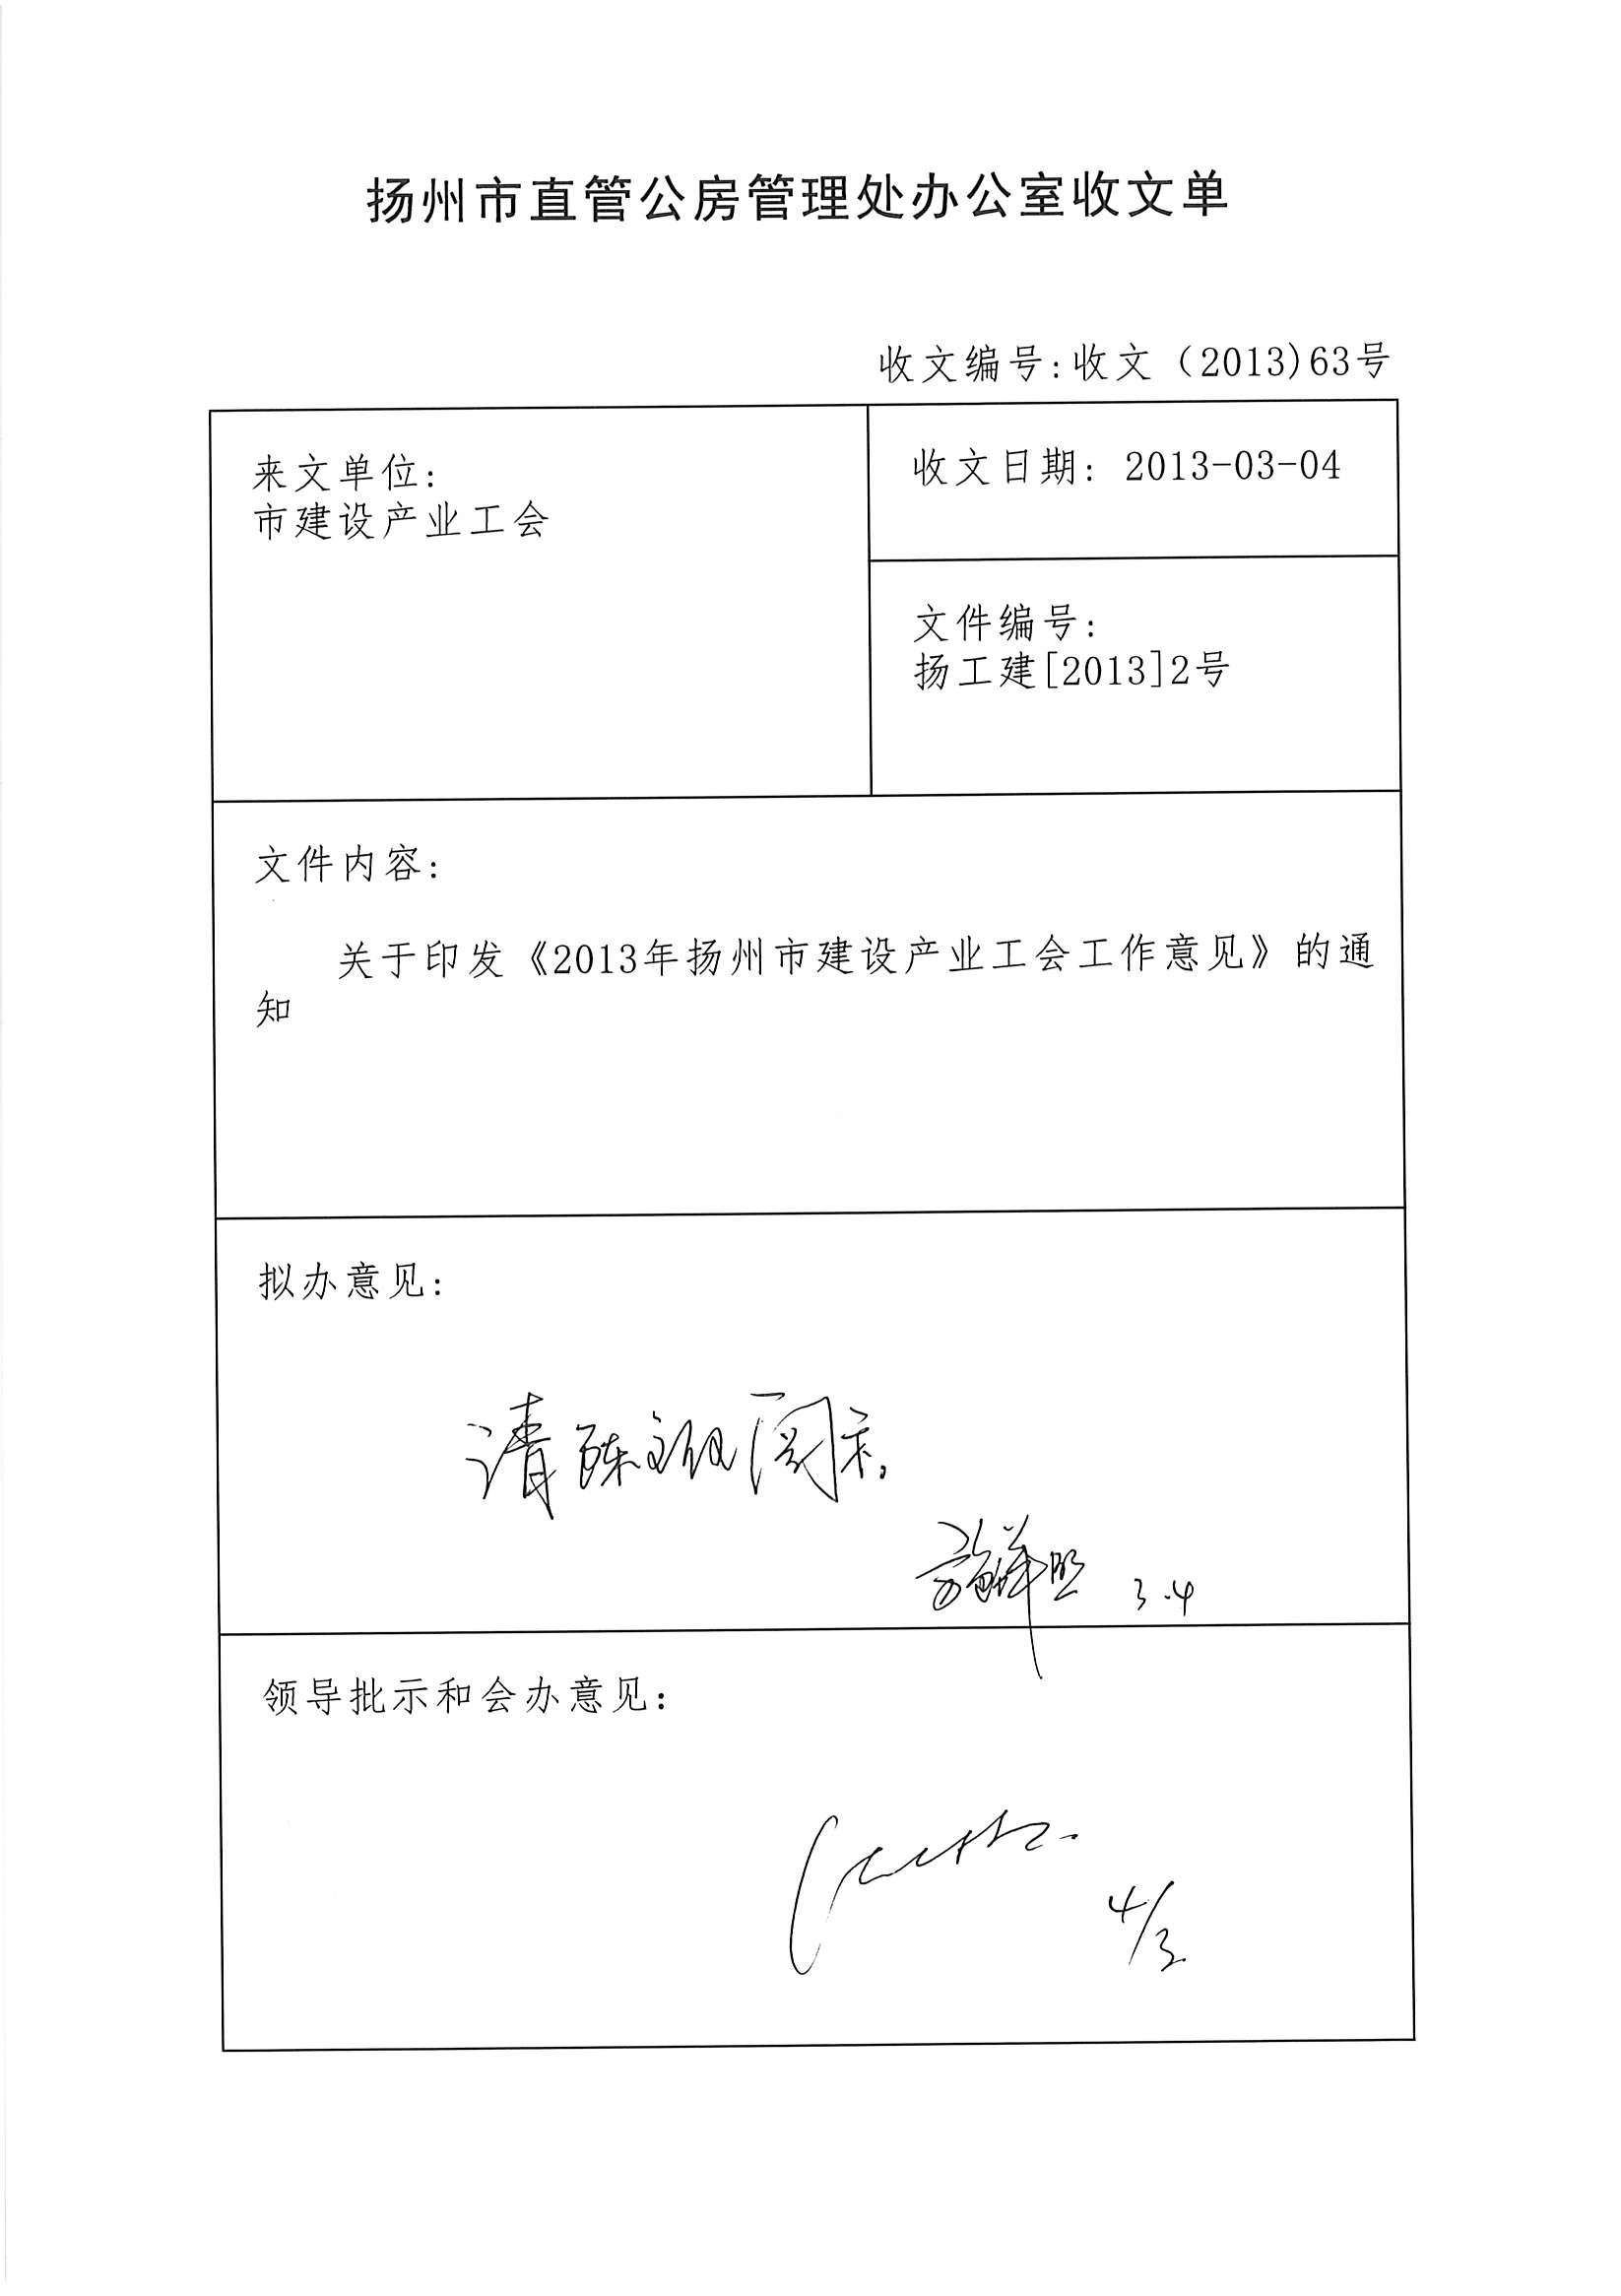 扬州市直管公房管理处办公室收文单
收文编号:收文（2013)63号
来文单位:
市建设产业工会
收文日期: 2013-03-04
文件编号:
扬工建[2013]2号
文件内容:
关于印发《2013年扬州市建设产业工会工作意见》的通
知
拟办意见:
请陈 阅示,
3.4
领导批示和会办意见:
4/3